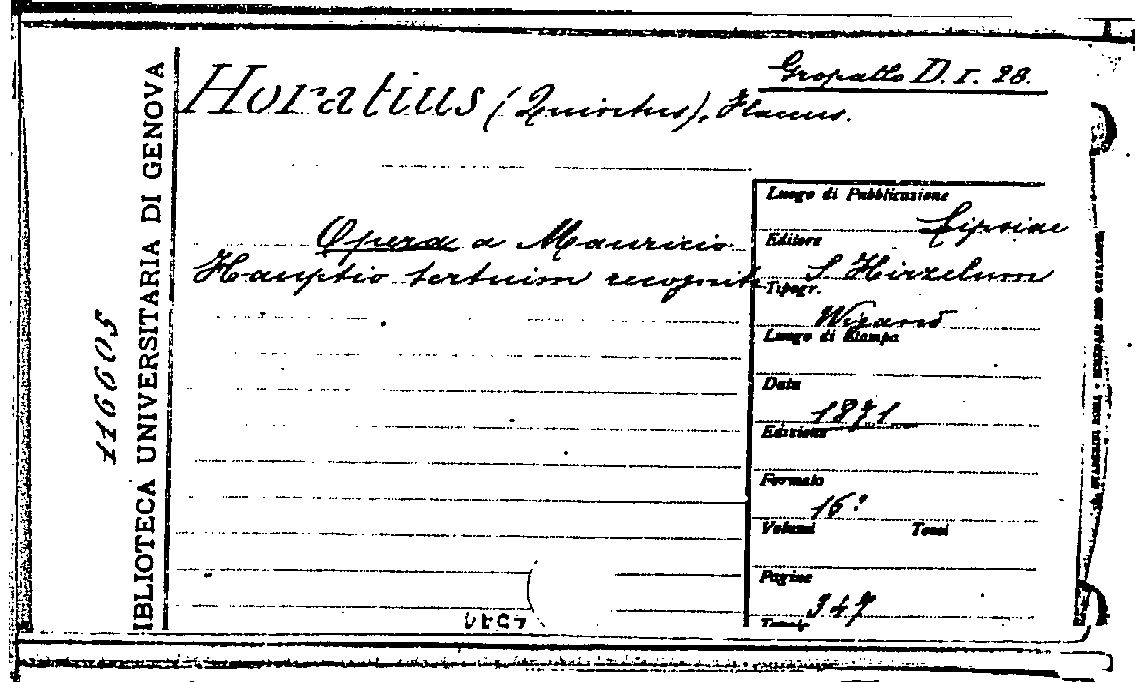 Gropallo D. I. 28.
Horatius (Quintus), Flaccus.
Opera a Mauricio
Hauptio tertuim recognita
Luogo di Pubblicazione
Lipsiae
Editore
S Hirzelum
Tipogr.
Wigand
Luogo di Stampa
Data
1871
Edizione
Formato
16º
Volumi Tomi
Pagine
347
BIBLIOTECA UNIVERSITARIA DI GENOVA
116605